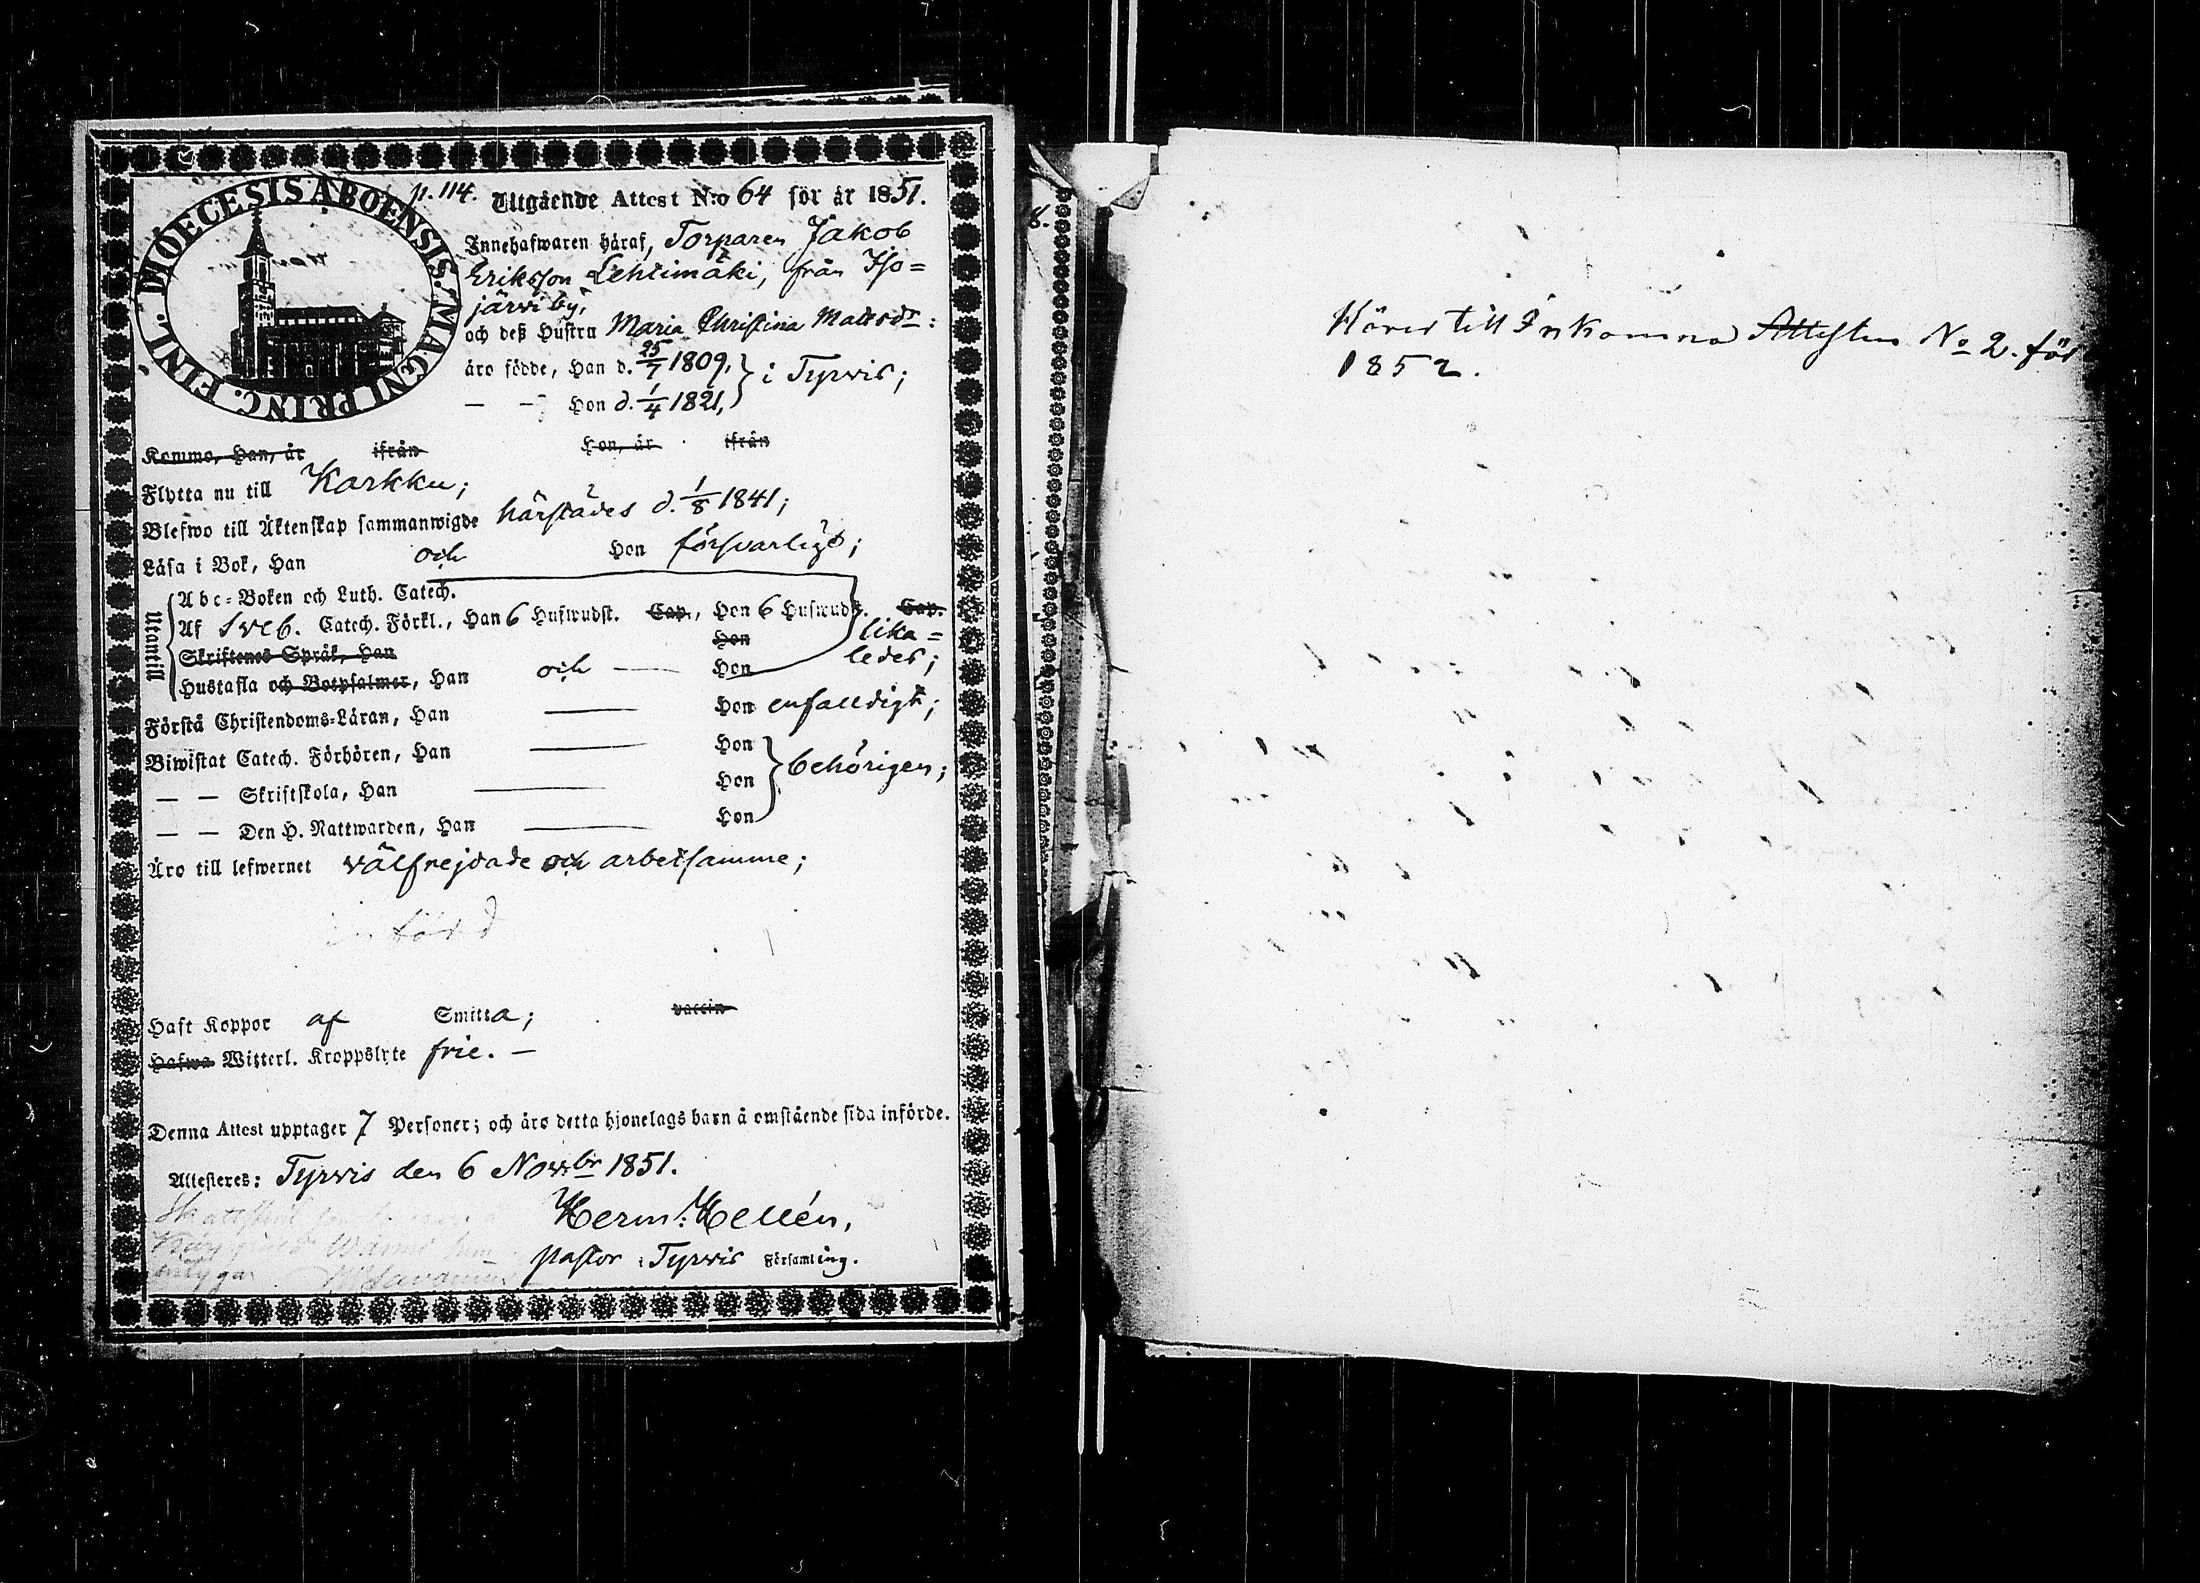 DIOECESIS ABOENSIS. MAGNI PRINC. FINL.
p. 114. Utgående Attest N:o 64 för år 1851.
Innehafwaren häraf, Torparen Jakob
Eriksson Lehtimäki, från Iso=
järvi by,
och deß Hustru Maria Christina Mattsdr:
äro födde, Han d. 25/7 1809, } i Tyrvis;
— — Hon d. 1/4 1821,
Kommo, Han, år ifrån Hon, år ifrån
Flytta nu till Karkku;
Blefwo till Äktenskap sammanwigde härstädes d. 1/8 1841;
Läsa i Bok, Han och Hon försvarligt;
Utantill
Abc-Boken och Luth. Catech.
Af Sveb. Catech. Förkl., Han 6 Hufwudst. Cap., Hon 6 Hufwudst. Cap.
Skriftenes Språk, Han Hon lika=
Hustafla och Botpsalmer, Han och — Hon ledes;
Förstå Christendoms-Läran, Han — Hon enfaldigt;
Biwistat Catech. Förhören, Han — Hon
— — Skriftskola, Han — Hon } behörigen;
— — Den H. Nattwarden, Han — Hon
Äro till lefwernet välfrejdade och arbetsamme;
införd
Haft Koppor af Smitta; vaccin
Hafwa Witterl. Kroppslyte frie. —
Denna Attest upptager 7 Personer; och äro detta hjonelags barn å omstående sida införde.
Attesteres: Tyrvis den 6 Novbr 1851.
Herm: Hellén,
pastor i Tyrvis Församling.
8.
Hörer till Inkomna Attesten No 2. för
1852.